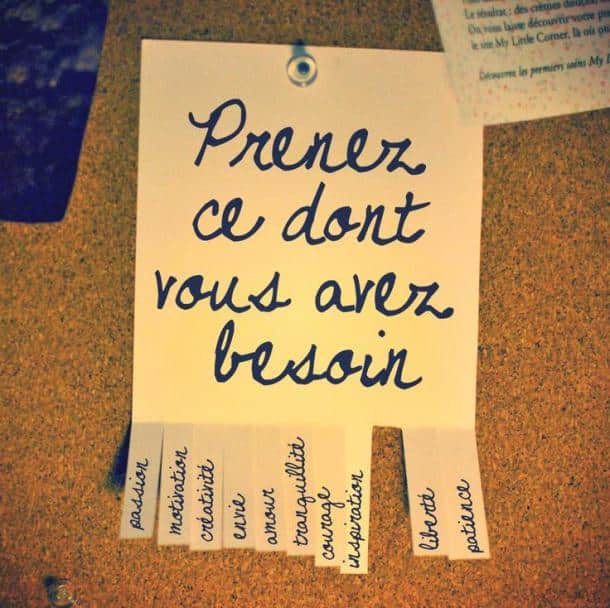 Prenez
ce dont
vous avez
besoin
passion
motivation
créativité
envie
amour
tranquillité
courage
inspiration
liberté
patience
Le résultat : des crèmes
On vous laisse découvrir votre
le site My Little Corner, là où
Découvrez les premiers soins My